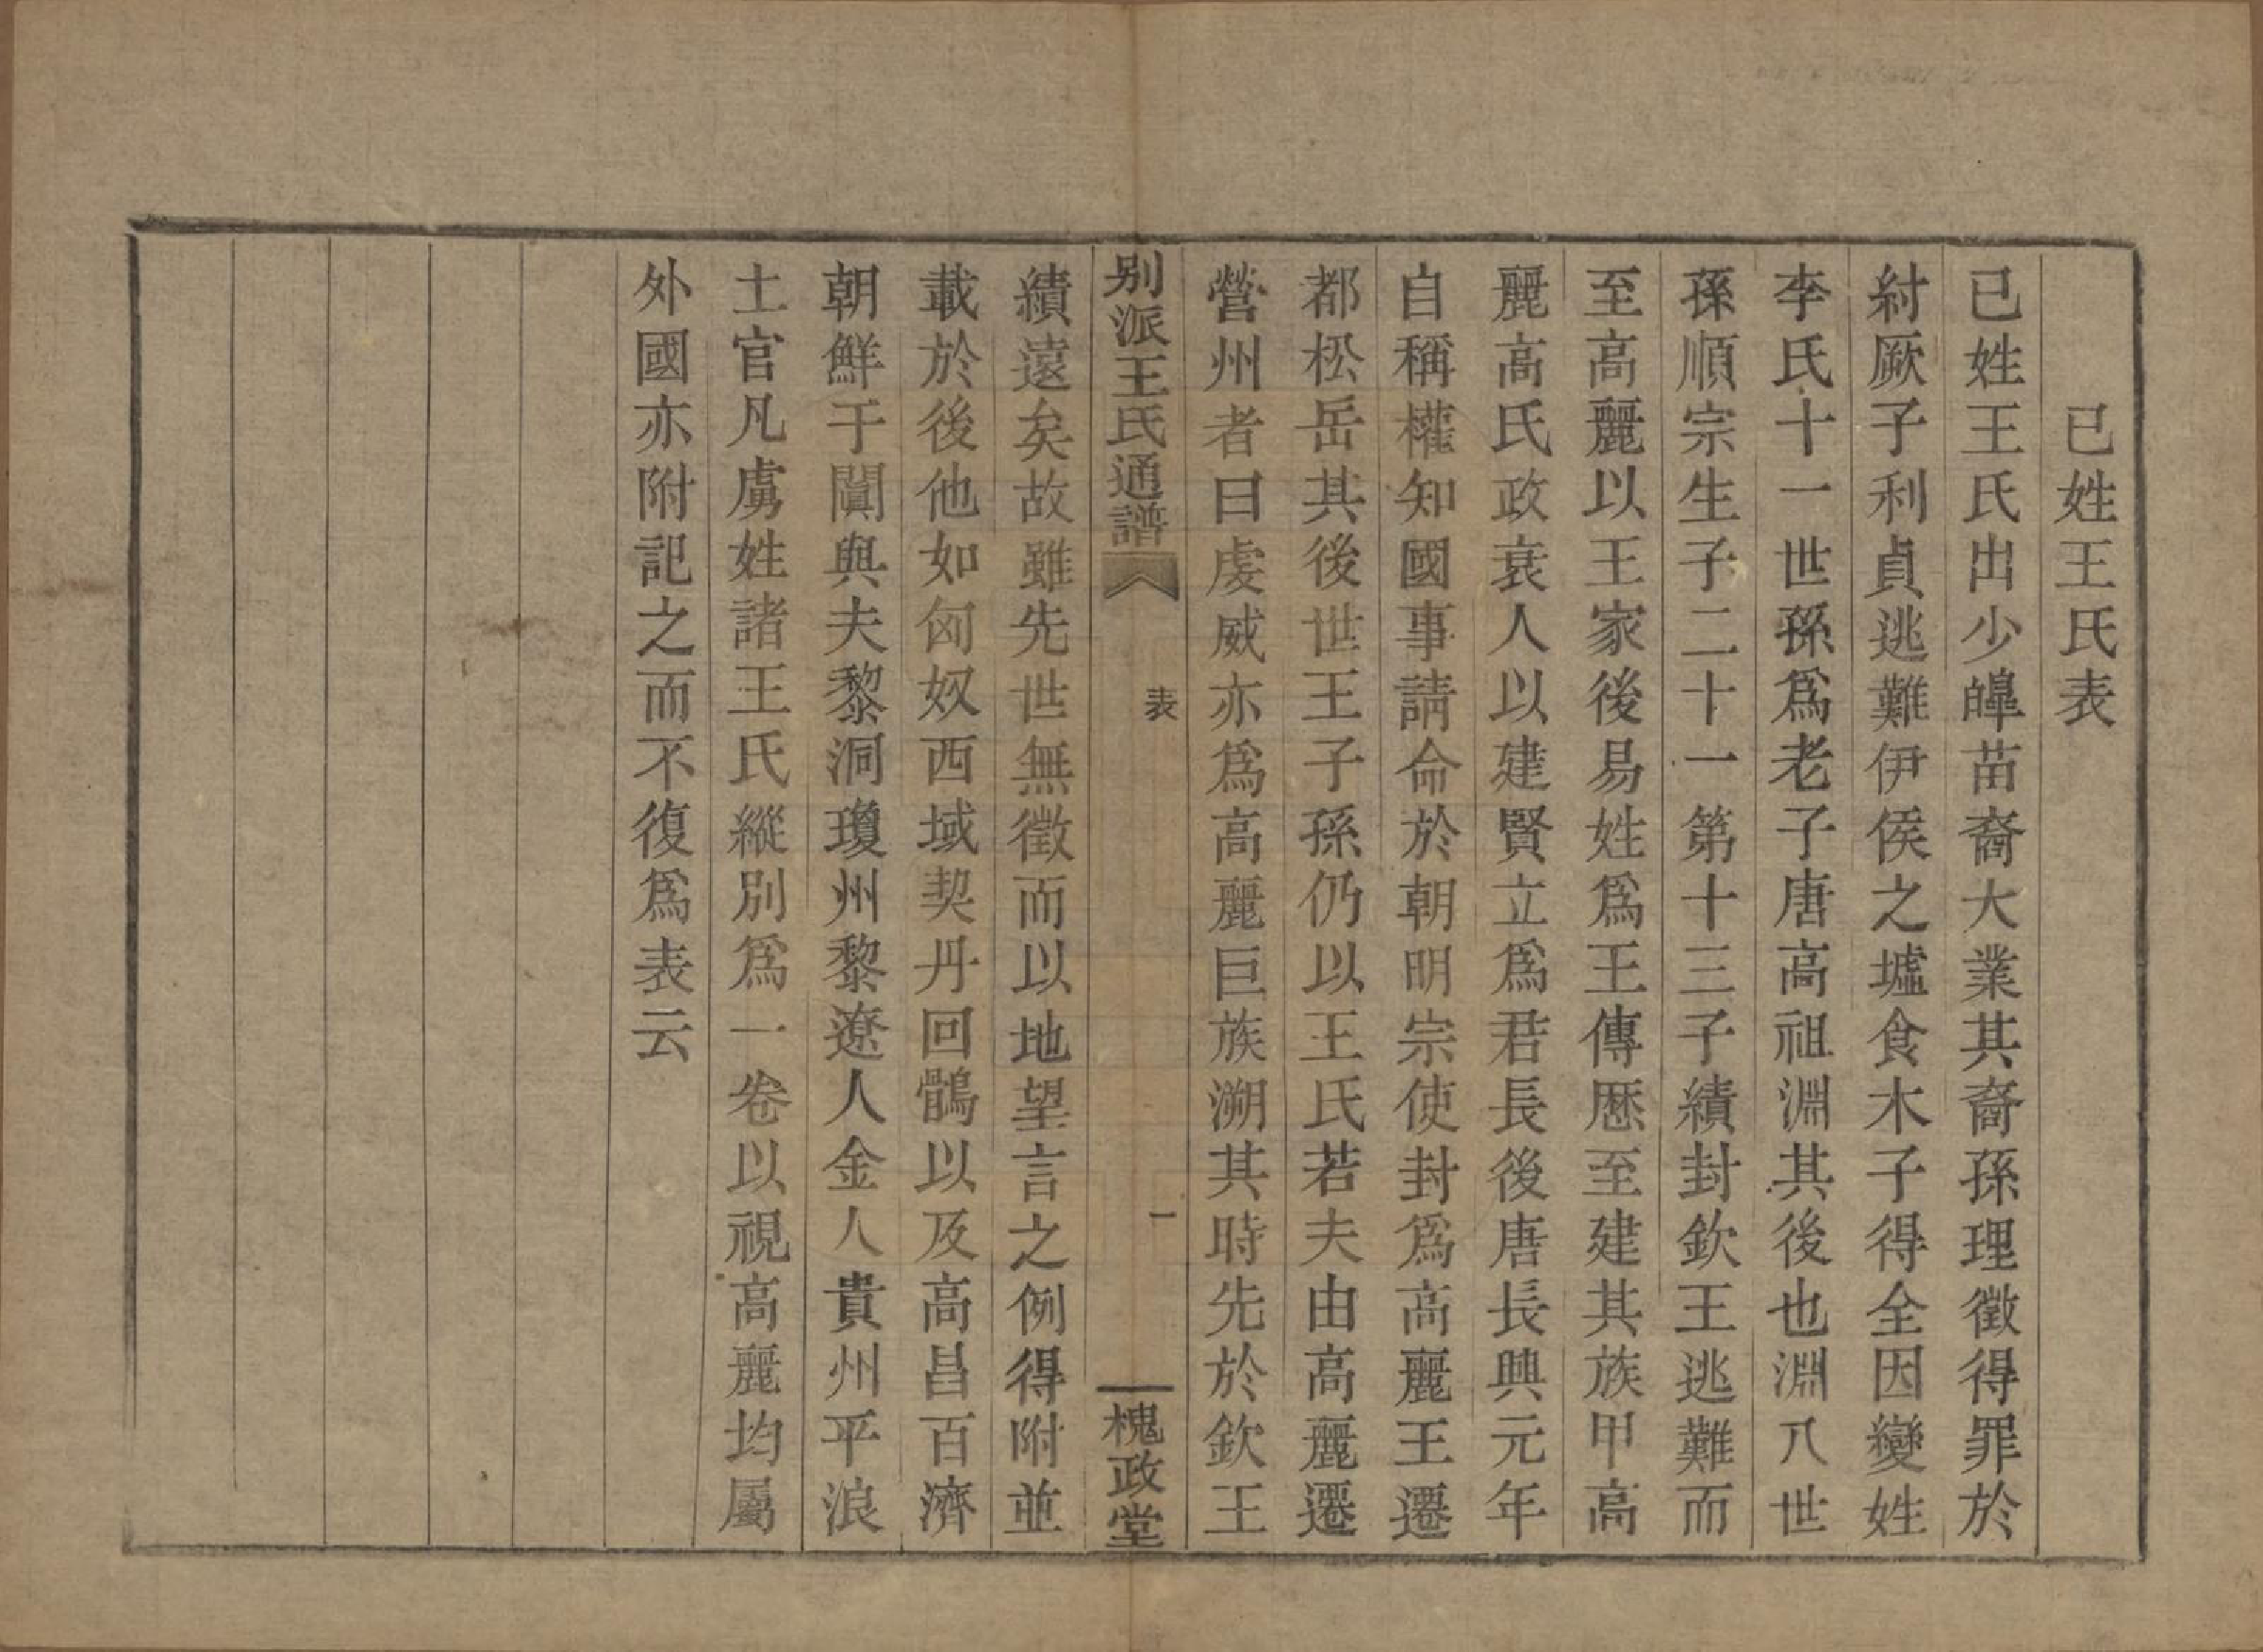 已姓王氏表
已姓王氏出少皞苗裔大業其裔孫理徵得罪於
紂厥子利貞逃難伊侯之墟食木子得全因變姓
李氏十一世孫爲老子唐高祖淵其後也淵八世
孫順宗生子二十一第十三子績封欽王逃難而
至高麗以王家後易姓爲王傳厯至建其族甲高
麗高氏政衰人以建賢立爲君長後唐長興元年
自稱權知國事請命於朝明宗使封爲高麗王遷
都松岳其後世王子孫仍以王氏若夫由高麗遷
營州者曰虔威亦爲高麗巨族溯其時先於欽王
別派王氏通譜
表
一
槐政堂
績遠矣故雖先世無徵而以地望言之例得附並
載於後他如匈奴西域契丹回鶻以及高昌百濟
朝鮮于闐與夫黎洞瓊州黎遼人金人貴州平浪
土官凡虜姓諸王氏縱別爲一卷以視高麗均屬
外國亦附記之而不復爲表云